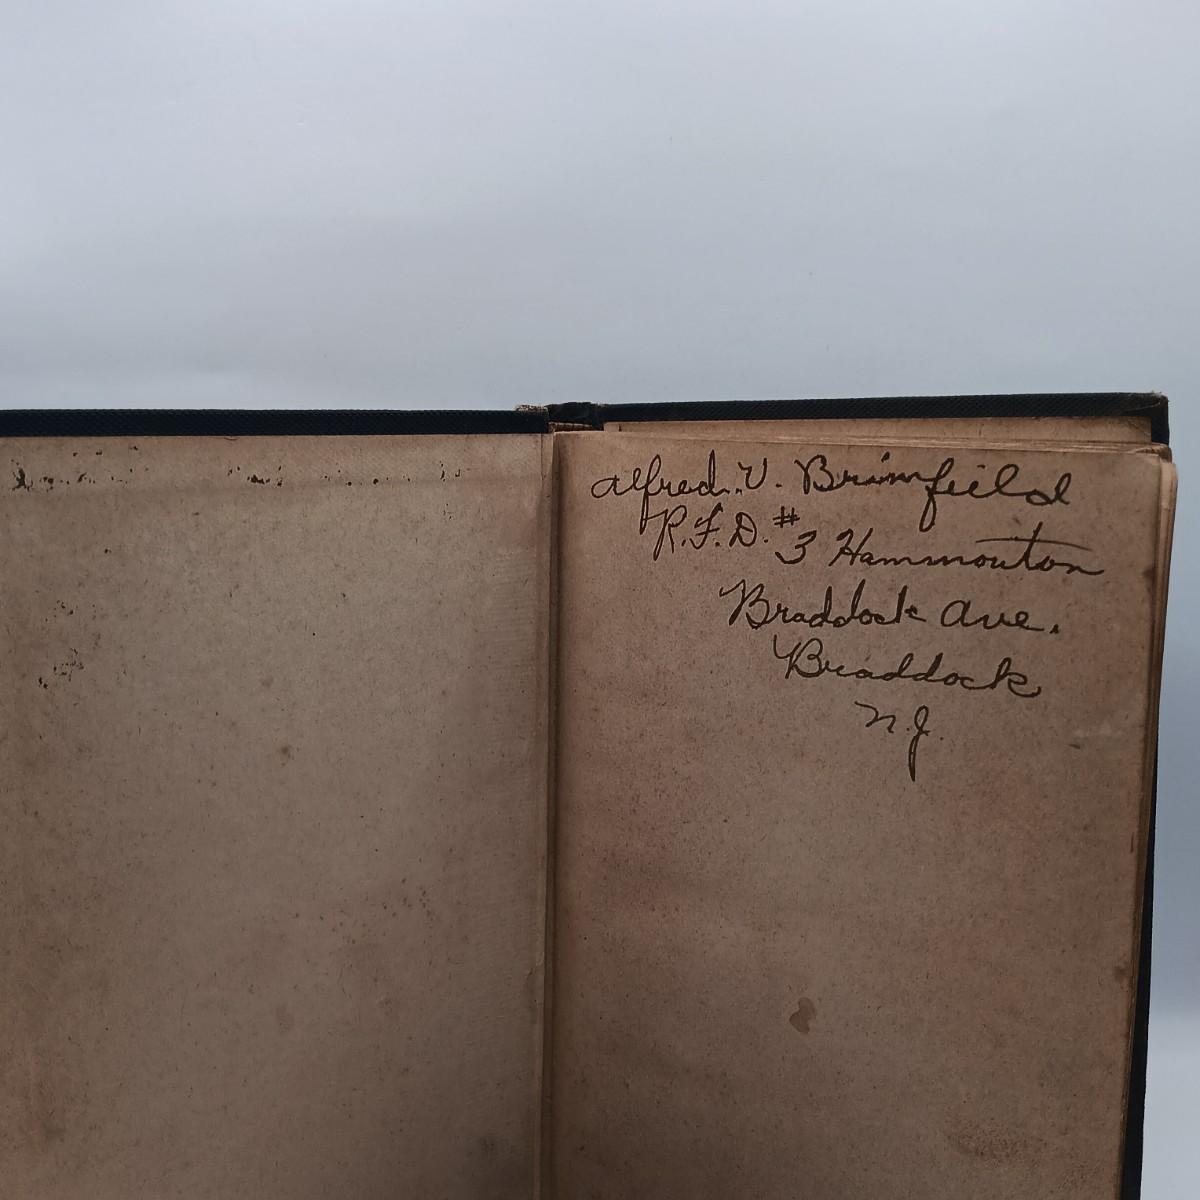 Alfred. V. Brimfield
R.F.D. #3 Hammonton
Braddock Ave.
Braddock
N.J.